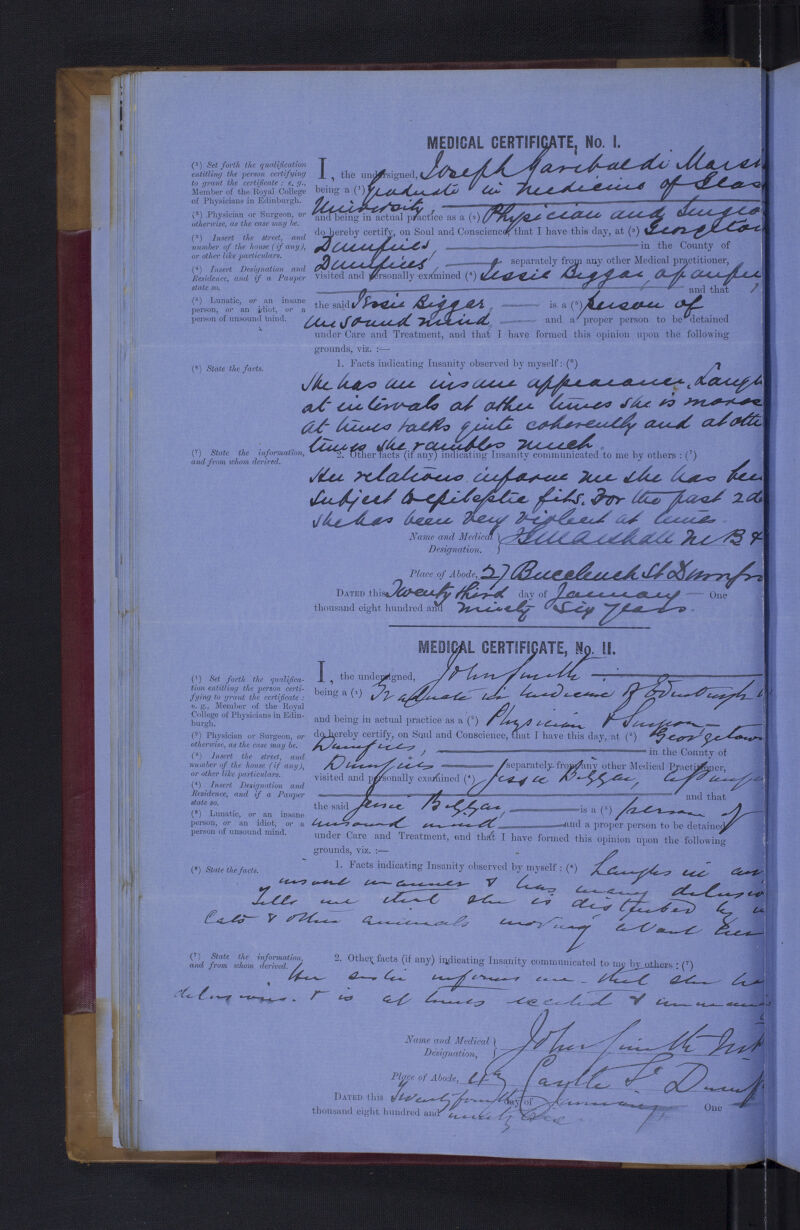 MEDICAL CERTIFICATE, No. I.
(¹) Set forth the qualification
entitling the person certifying
to grant the certificate: e. g.,
Member of the Royal College
of Physicians in Edinburgh.
(²) Physician or Surgeon, or
otherwise, as the case may be.
(³) Insert the street, and
number of the house (if any),
or other like particulars.
(⁴) Insert Designation and
Residence, and if a Pauper
state so.
(⁵) Lunatic, or an insane
person, or an idiot, or a
person of unsound mind.
(⁶) State the facts.
(⁷) State the information,
and from whom derived.
I, the undersigned, Joseph Garibaldi Marsh
being a (¹) Graduate in medicine of Glas
University,
and being in actual practice as a (²) Physician and Surgeo
do hereby certify, on Soul and Conscience, that I have this day, at (³) Georgetow
Dumfries, in the County of
Dumfries, separately from any other Medical Practitioner,
visited and personally examined (⁴) Jessie Biggar, a pauper
and that
the said Jessie Biggar, is a (⁵) person of
unsound mind, and a proper person to be detained
under Care and Treatment, and that I have formed this opinion upon the following
grounds, viz. :—
1. Facts indicating Insanity observed by myself: (⁶)
She has an insane appearance. Laugh
at intervals at other times she is morose
at times talks quite coherently and at othe
times she rambles much.
2. Other facts (if any) indicating Insanity communicated to me by others : (⁷)
Her relations inform me she has been
subject to epileptic fits. For the past 2 d
she has been very violent at times.
Name and Medical
Designation. } JGMarshall M B &
Place of Abode, 27 Buccleuch St Dumfr
DATED this Twenty third day of January One
thousand eight hundred and ninety six years.
MEDICAL CERTIFICATE, No. II.
(¹) Set forth the qualifica-
tion entitling the person certi-
fying to grant the certificate :
e. g., Member of the Royal
College of Physicians in Edin-
burgh.
(²) Physician or Surgeon, or
otherwise, as the case may be.
(³) Insert the street, and
number of the house (if any),
or other like particulars.
(⁴) Insert Designation and
Residence, and if a Pauper
state so.
(⁵) Lunatic, or an insane
person, or an idiot, or a
person of unsound mind.
(⁶) State the facts.
(⁷) State the information,
and from whom derived.
I, the undersigned, John Smith
being a (¹) Graduate in medicine of Edinburgh
and being in actual practice as a (²) Physician & Surgeon
do hereby certify, on Soul and Conscience, that I have this day, at (³) Georgetown
Dumfries, in the County of
Dumfries separately from any other Medical Practitioner,
visited and personally examined (⁴) Jessie Biggar, a pauper
and that
the said Jessie Biggar, is a (⁵) person of
unsound mind and a proper person to be detained
under Care and Treatment, and that I have formed this opinion upon the following
grounds, viz. :—
1. Facts indicating Insanity observed by myself : (⁶) Laughs in an
insane manner & has many delusio
Tells me that she is disturbed by
Cats & other animals moving about her
2. Other facts (if any) indicating Insanity communicated to me by others : (⁷)
Her sister informs me that she ha
delusions. & is at times excited &
Name and Medical
Designation, } John Smith
Place of Abode, Castle St Dumf
DATED this Twenty fourth day of January One
thousand eight hundred and ninety six